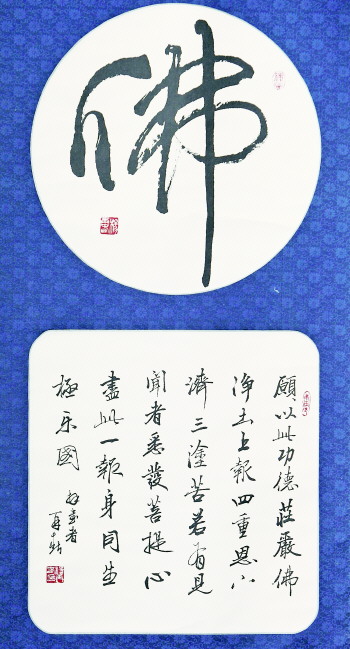 佛
願以此功德莊嚴佛
净土上報四重恩下
濟三塗苦若有見
聞者悉發菩提心
盡此一報身同生
極乐國